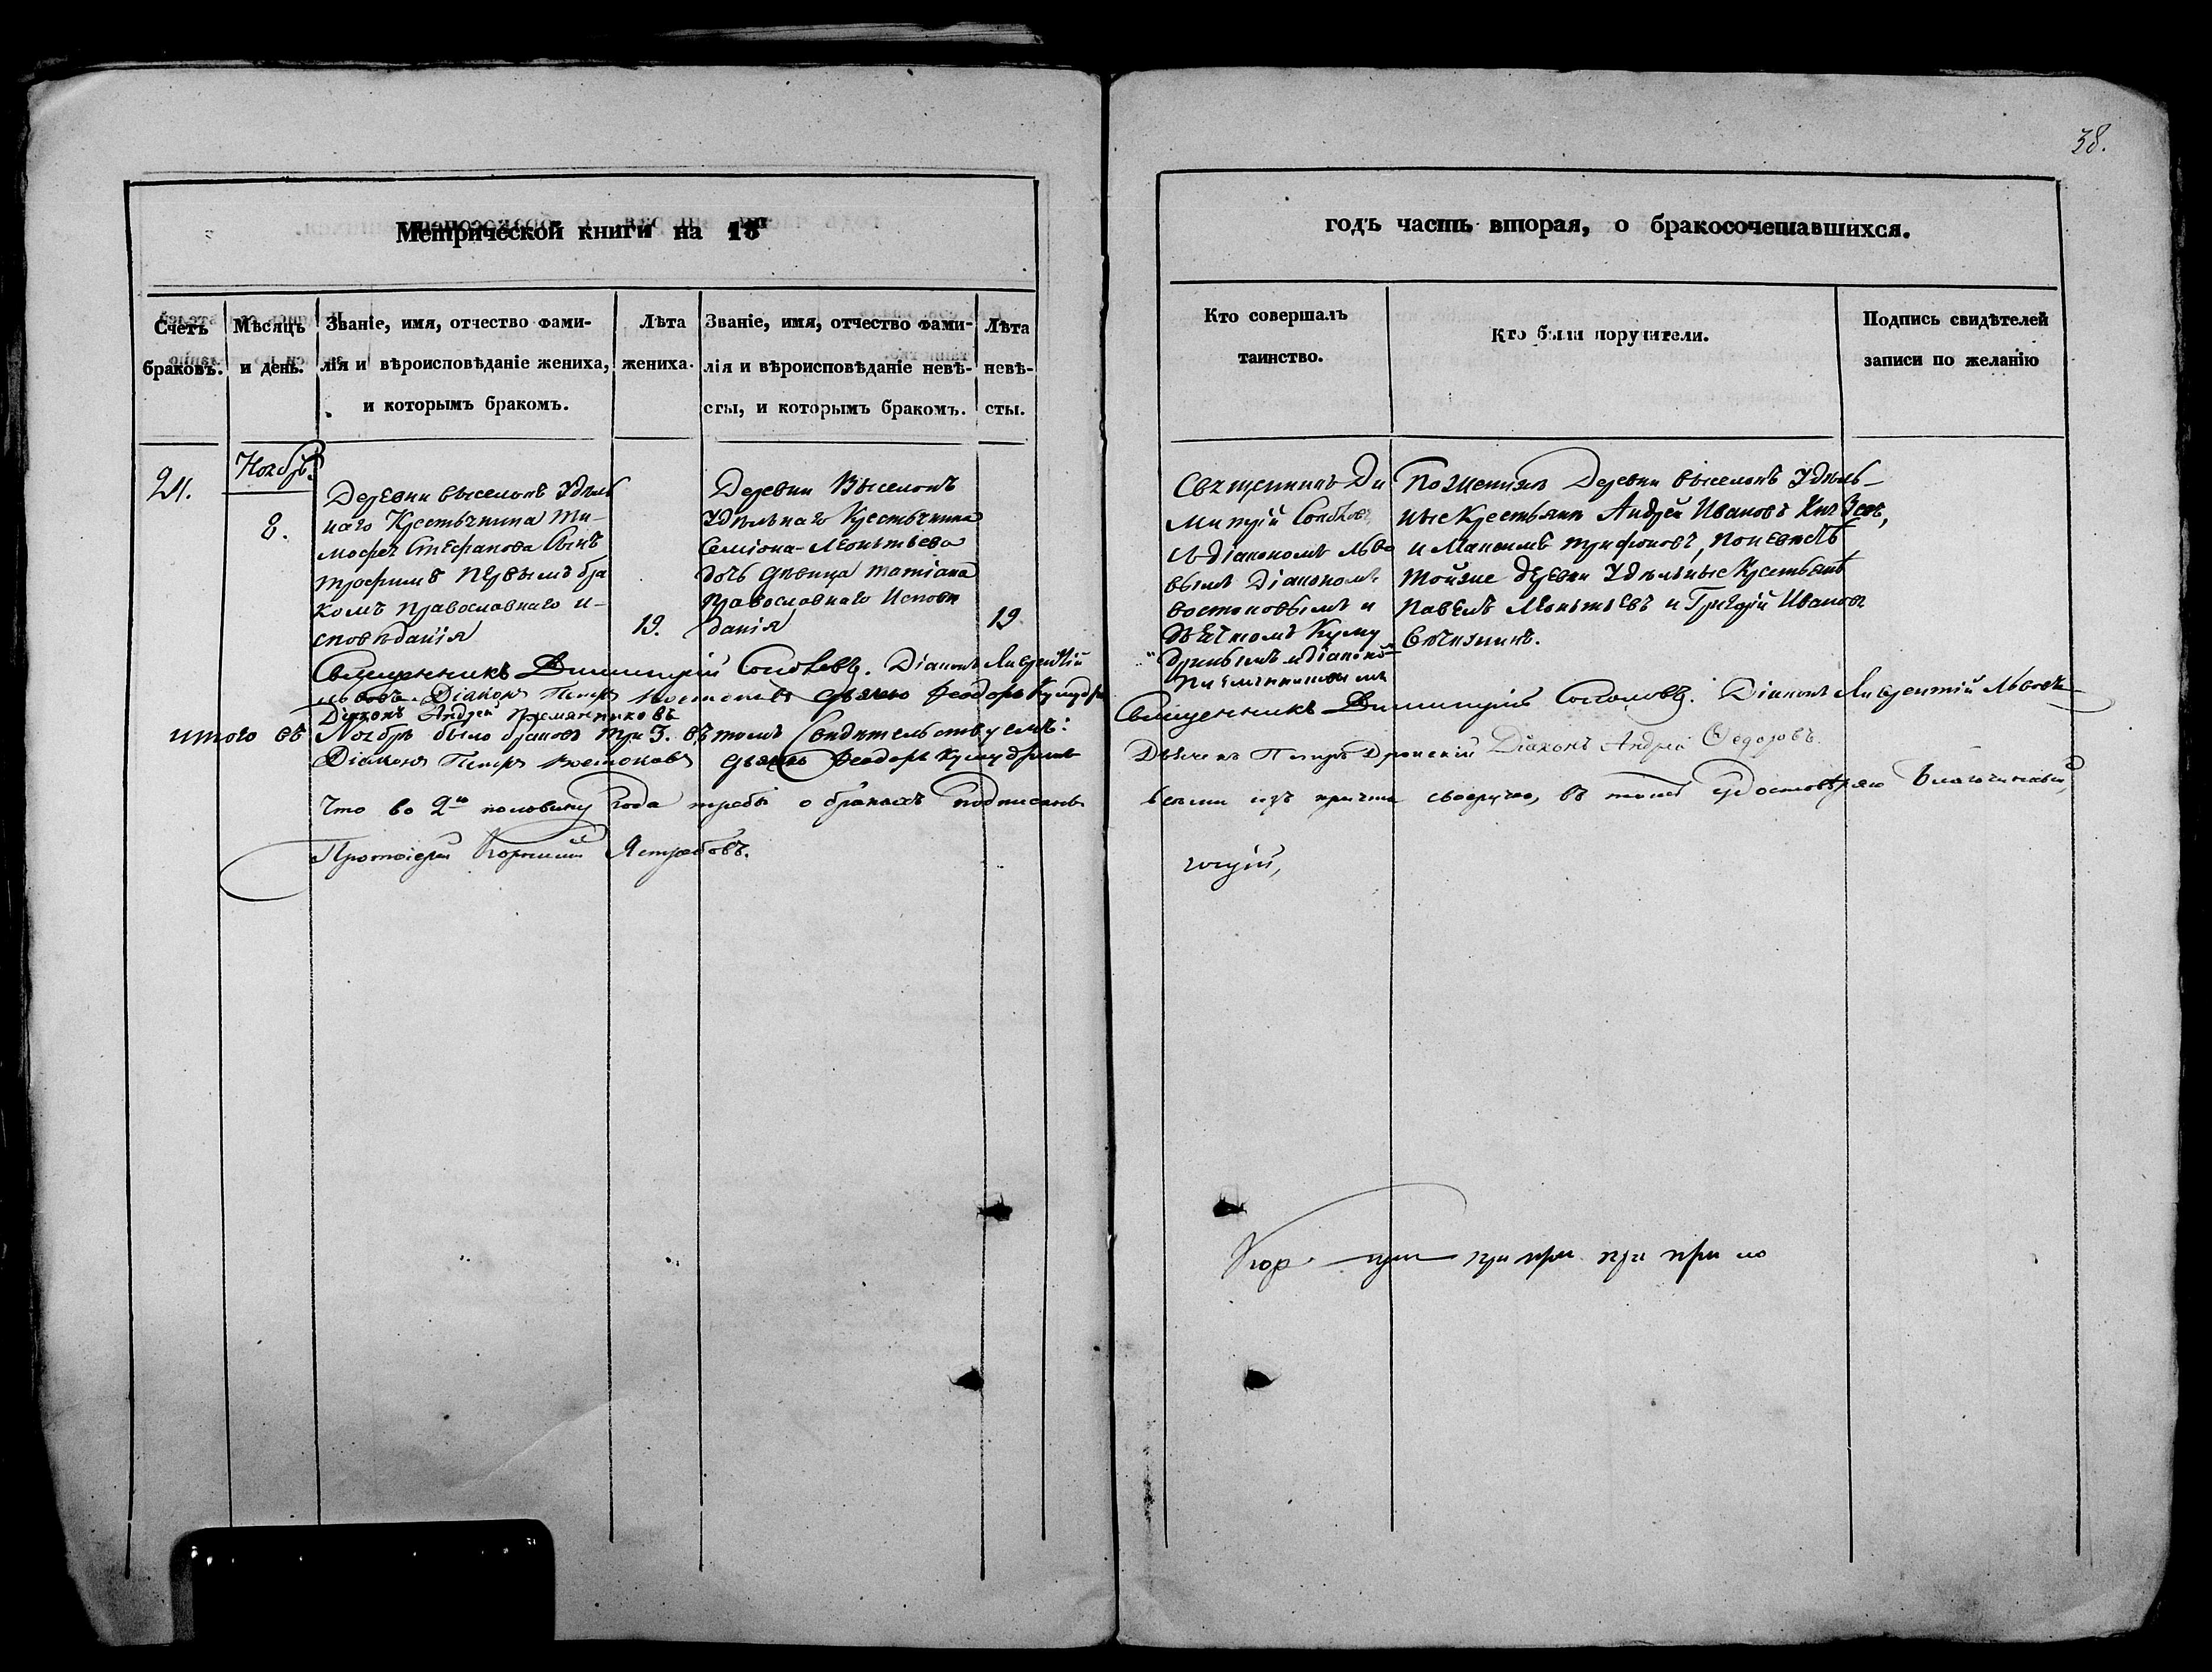 38.
Метрической книги на 18
годъ часть вторая, о бракосочетавшихся.
Счетъ браковъ.
Мѣсяцъ и день.
Званіе, имя, отчество фами-
лія и вѣроисповѣданіе жениха,
и которымъ бракомъ.
Лѣта
жениха.
Званіе, имя, отчество фами-
лія и вѣроисповѣданіе невѣ-
сты, и которымъ бракомъ.
Лѣта
невѣ-
сты.
Кто совершалъ
таинство.
Кто были поручители.
Подпись свидѣтелей
записи по желанію
21.
Ноябрь.
8.
Деревни выселокъ Удѣль
наго Крестьянина Ти-
мофея Стефанова Сынъ
Трофимъ первымъ бра
комъ православнаго и-
сповѣданія
19.
Деревни Выселокъ
Удѣльнаго Крестьянина
Семіона Леонтьева
дочь дѣвица Татіана
Православнаго Исповѣ
данія
19
Священникъ Ди
митрій
съ діакономъ Льво
вымъ Діакономъ
востоковымъ и
дьячкомъ Куму
дринымъ и діакономъ
Племянниковымъ
По женихѣ Деревни выселокъ Удѣль-
ные Крестьяне Андрей Ивановъ
и Максимъ Трифоновъ, по невѣстѣ
тойже деревни Удѣльные Крестьяне
Павелъ Леонтьевъ и Григорій Ивановъ
Священникъ Димитрій Соколовъ. Діаконъ Лаврентій
Львовъ Діаконъ Петръ Востоковъ дьячекъ Феодоръ
Діаконъ Андрей Племянниковъ
итого въ Ноябрѣ было браковъ три 3. въ томъ Свидѣтельствуемъ:
Священникъ Димитрій Соколовъ. Діаконъ Лаврентій Львовъ
Діаконъ Петръ Востоковъ дьячекъ Феодоръ Кумудринъ
Дьячекъ Петръ Діаконъ Андрей Федоровъ.
Что во 2ю половину года требы о бракахъ подписаны
всѣми изъ причта своеручно, въ томъ удостовѣряю Благочинный,
Протоіерей Ястребовъ.